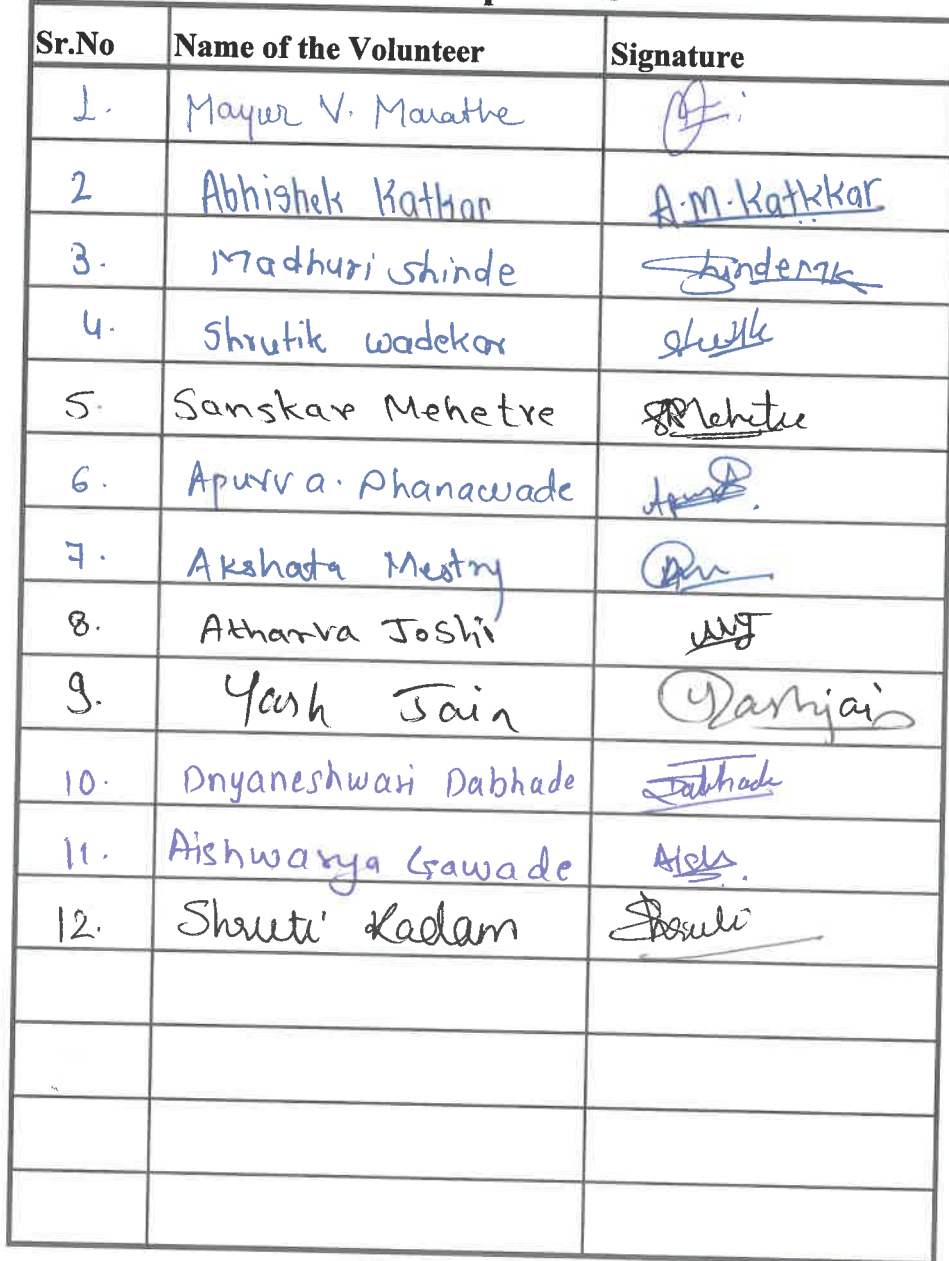 Sr.No Name of the Volunteer Signature
1. Mayur V. Marathe
2 Abhishek Katkar A.M.Katkkar
3. Madhuri Shinde ShindeMK
4. Shrutik wadekar
5. Sanskar Mehetre SRMehetre
6. Apurva. Dhanawade
7. Akshata Mestry
8. Atharva Joshi
9. Yash Jain Yashjain
10. Dnyaneshwari Dabhade Dabhade
11. Aishwarya Gawade Aish
12. Shruti Kadam Shruti